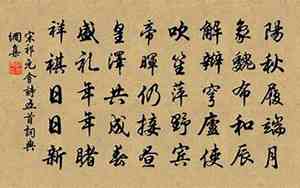 陽秋履端月
象魏布和辰
解辮穹廬使
吹笙萍野賓
帝暉仍接
皇澤共成春
盛礼年年睹
祥祺日日新
宋祁元會詩五首詞典
網集